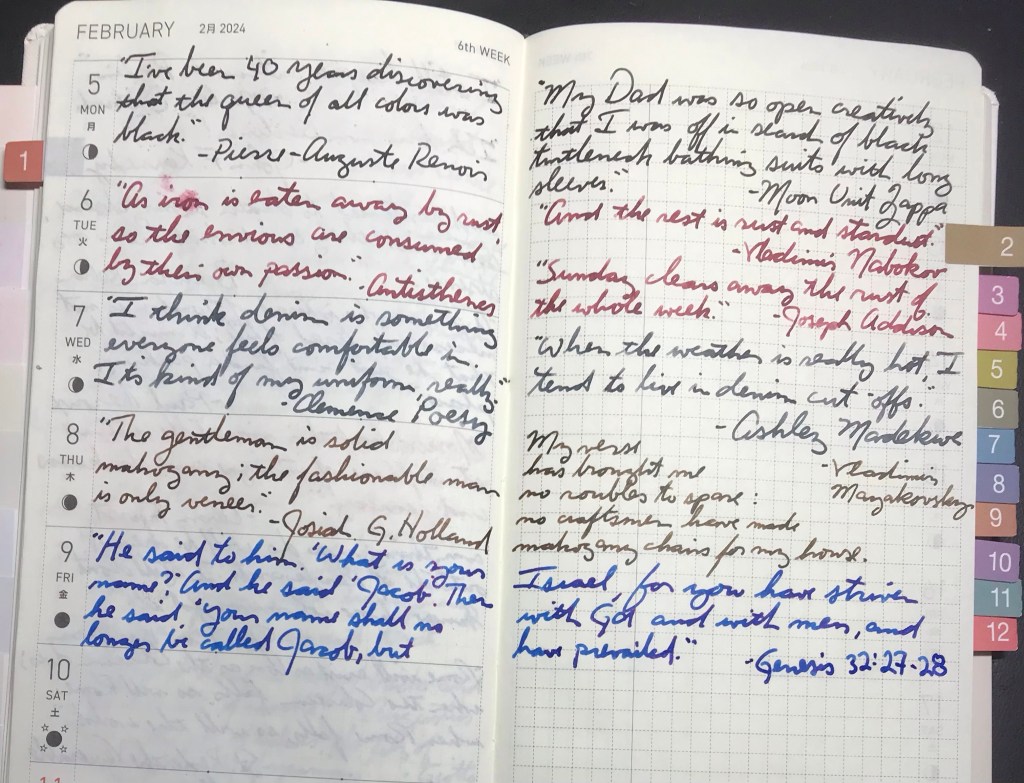 FEBRUARY 2月 2024
6th WEEK
5
MON
月
"I've been 40 years discovering
that the queen of all colors was
black."
-Pierre-Auguste Renoir
6
TUE
火
"As iron is eaten away by rust,
so the envious are consumed
by their own passion."
-Antisthenes
7
WED
水
"I think denim is something
everyone feels comfortable in.
It's kind of my uniform, really."
-Clemense Poesy
8
THU
木
"The gentleman is solid
mahogany; the fashionable man
is only veneer."
-Josiah G. Holland
9
FRI
金
"He said to him. 'What is your
name?' And he said 'Jacob'. Then
he said 'your name shall no
longer be called Jacob, but
10
SAT
土
11
"My Dad was so open creatively
that I was off in search of black
turtleneck bathing suits with long
sleeves."
-Moon Unit Zappa
"And the rest is rust and stardust."
-Vladimir Nabokov
"Sunday clears away the rust of
the whole week."
-Joseph Addison
"When the weather is really hot, I
tend to live in denim cut offs."
-Ashley Madekwe
My verse
has brought me
no roubles to spare:
no craftsmen have made
mahogany chairs for my house.
-Vladimir
Mayakovsky
Israel, for you have striven
with God and with men, and
have prevailed."
-Genesis 32:27-28
1
2
3
4
5
6
7
8
9
10
11
12